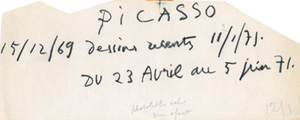 PiCASSO
15/12/69 dessins récents 11/1/71.
DU 23 Avril au 5 juin 71.
12/1